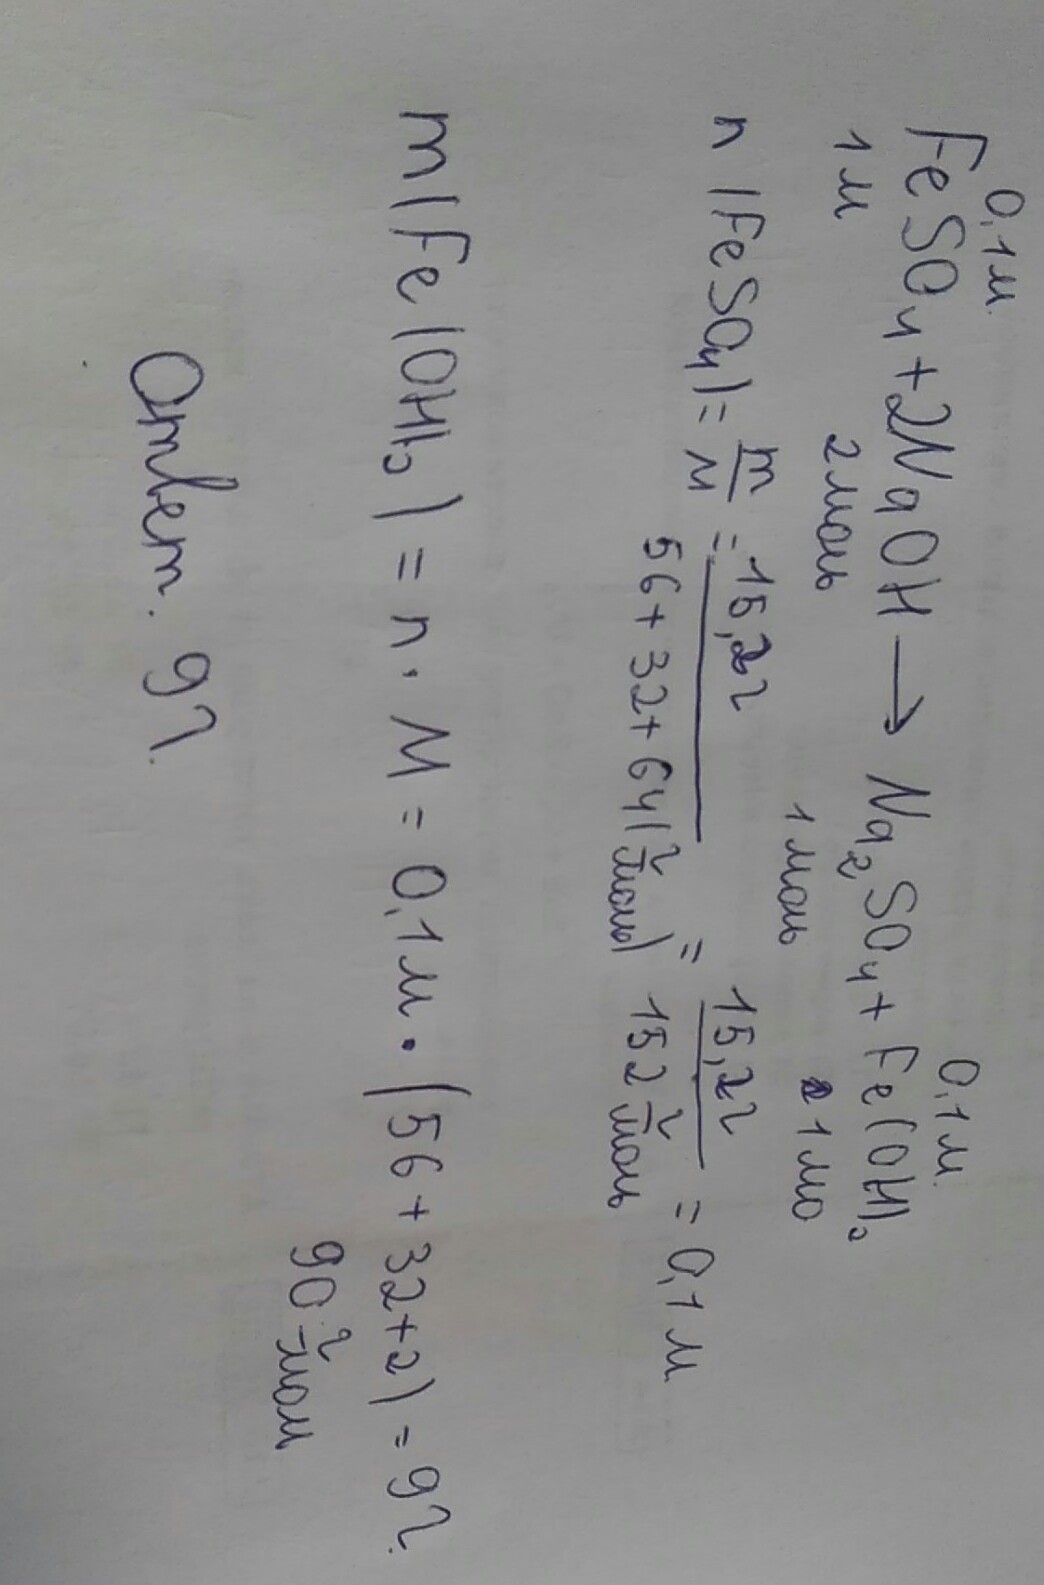 0,1м 0,1м.
FeSO4 + 2NaOH → Na2SO4 + Fe(OH)2
1м 2моль 1моль 1мо
n (FeSO4) = m/M = 15,2г / 56 + 32 + 64 (г/моль) = 15,2г / 152 г/моль = 0,1м
m(Fe(OH)2) = n · M = 0,1м · (56 + 32 + 2) = 9г.
90 г/мол
Ответ. 9г.